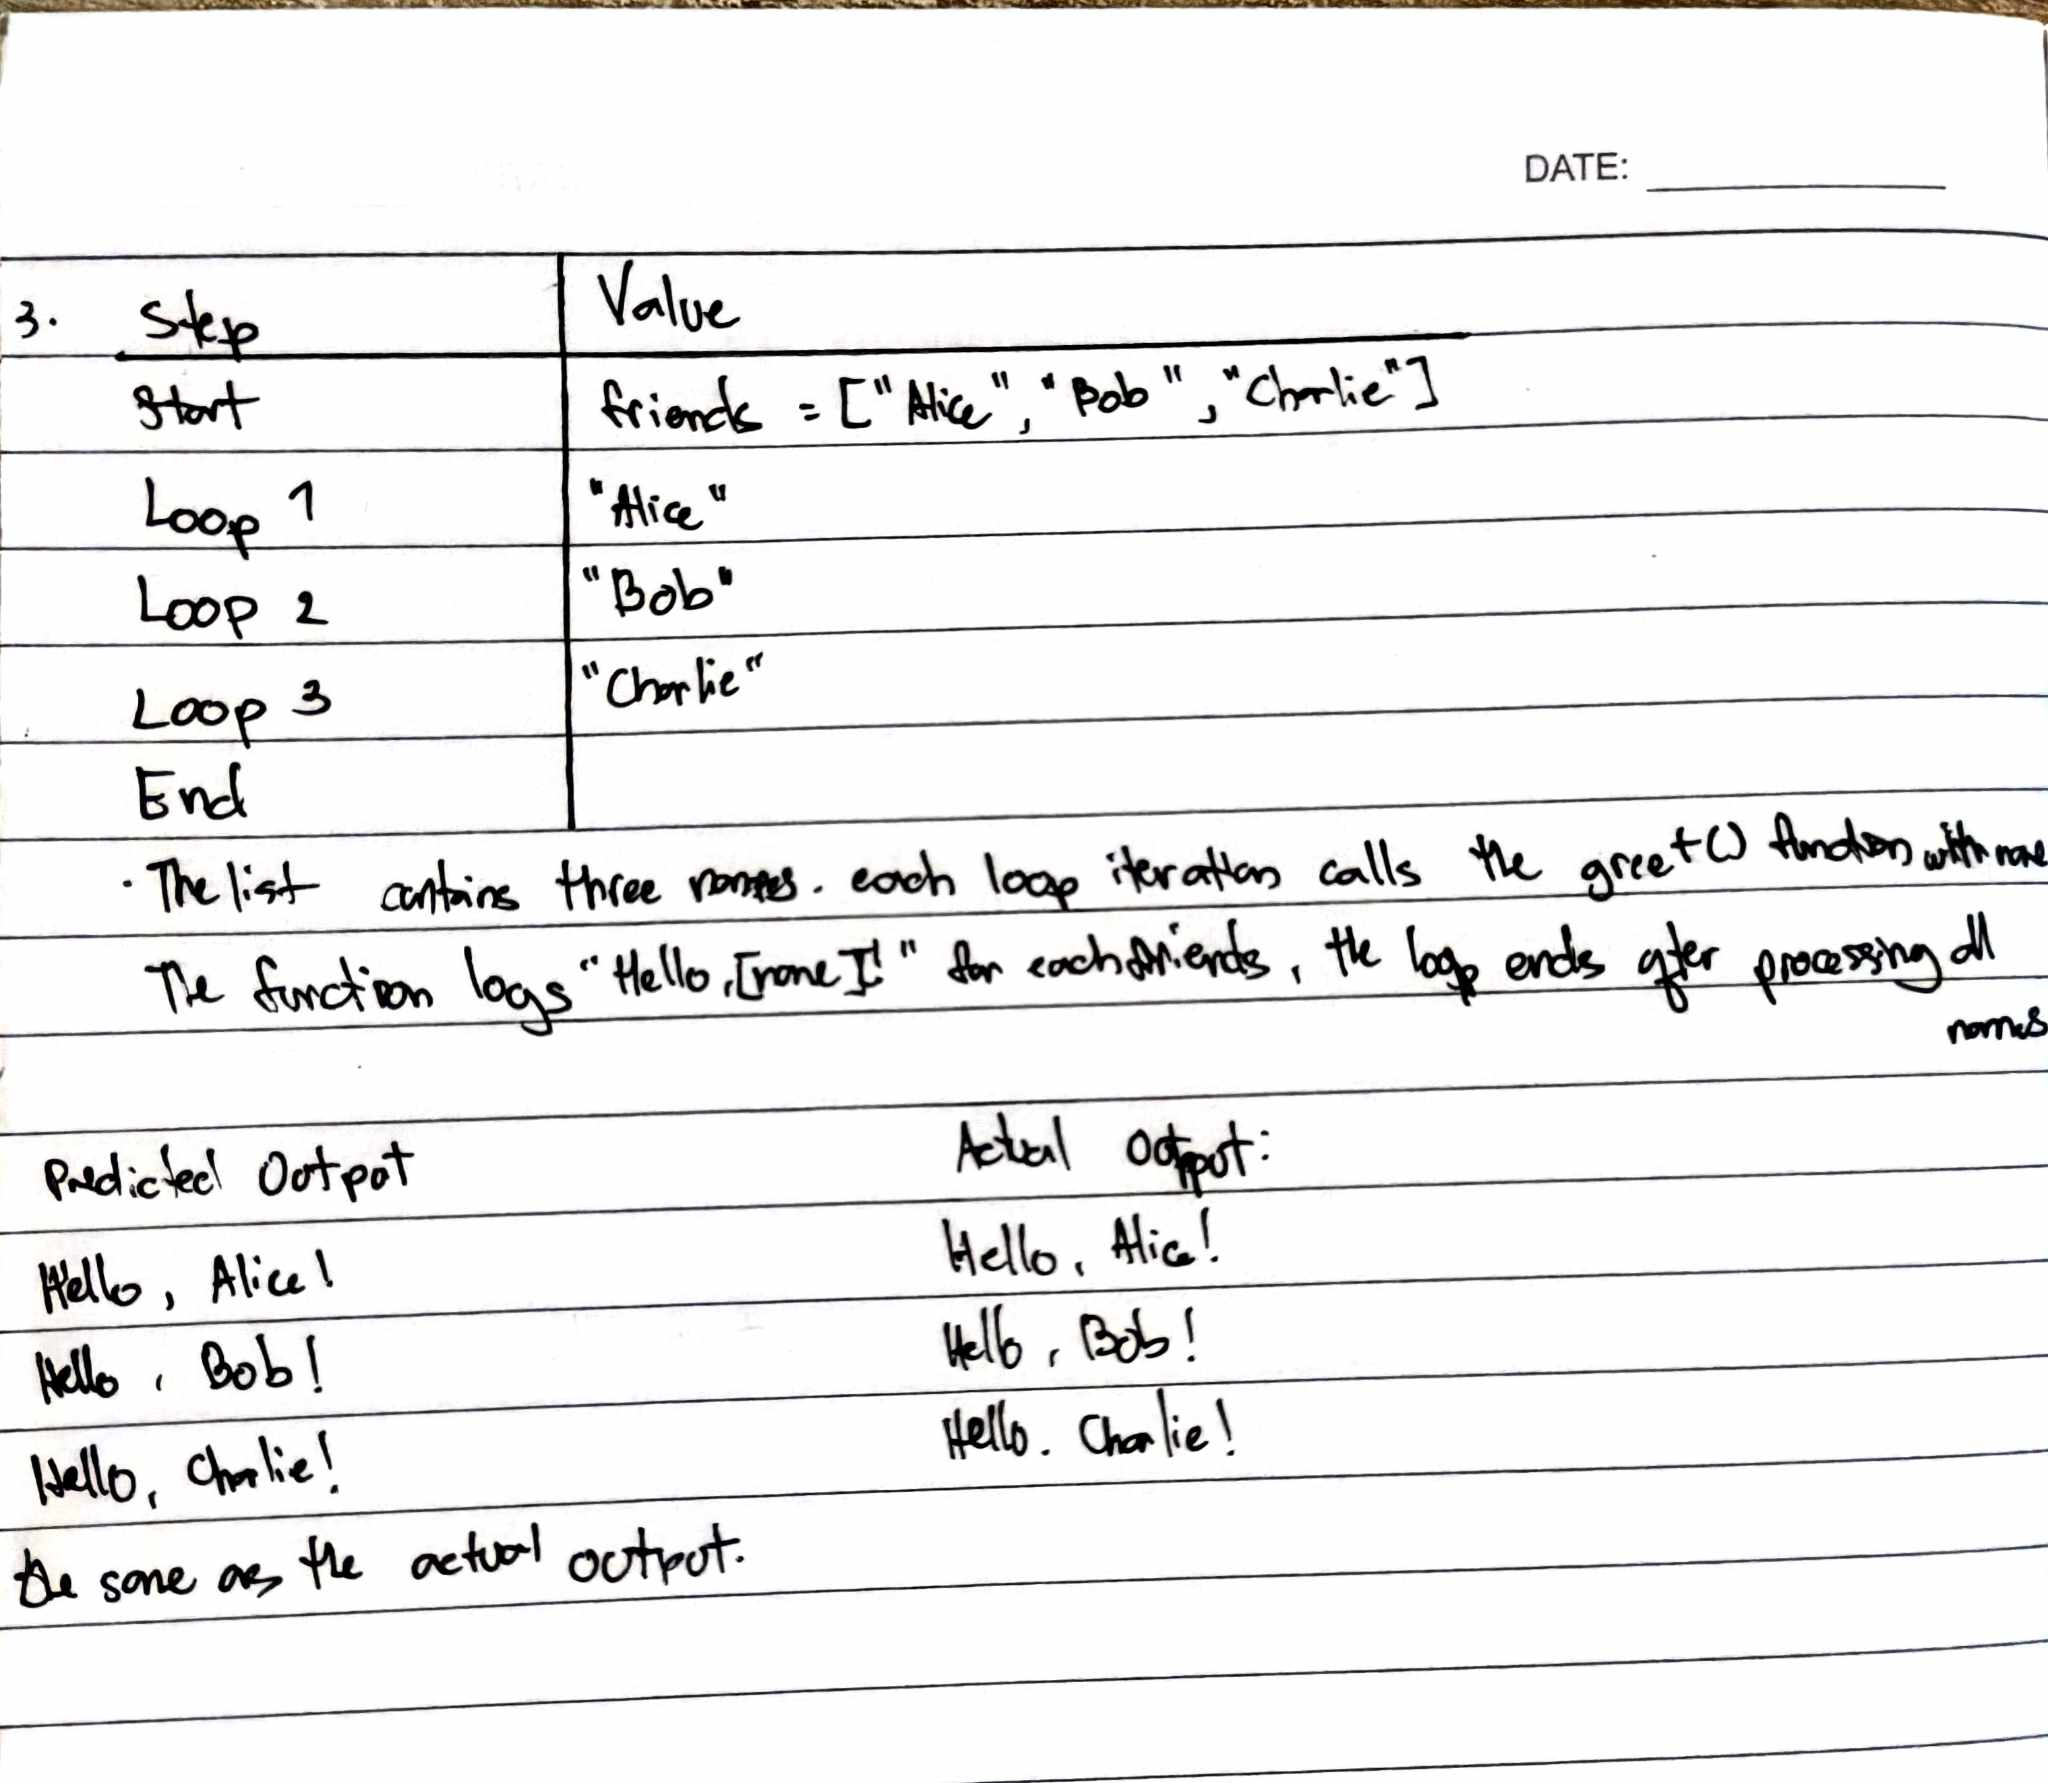 DATE:
3. Step Value
Start friends = ["Alice", "Bob", "Charlie"]
Loop 1 "Alice"
Loop 2 "Bob"
Loop 3 "Charlie"
End
· The list contains three names. each loop iteration calls the greet() function with name
The function logs "Hello, [name]!" for each friends, the loop ends after processing all
names
Predicted Output Actual Output:
Hello, Alice! Hello, Alice!
Hello, Bob! Hello, Bob!
Hello, Charlie! Hello. Charlie!
the same as the actual output.